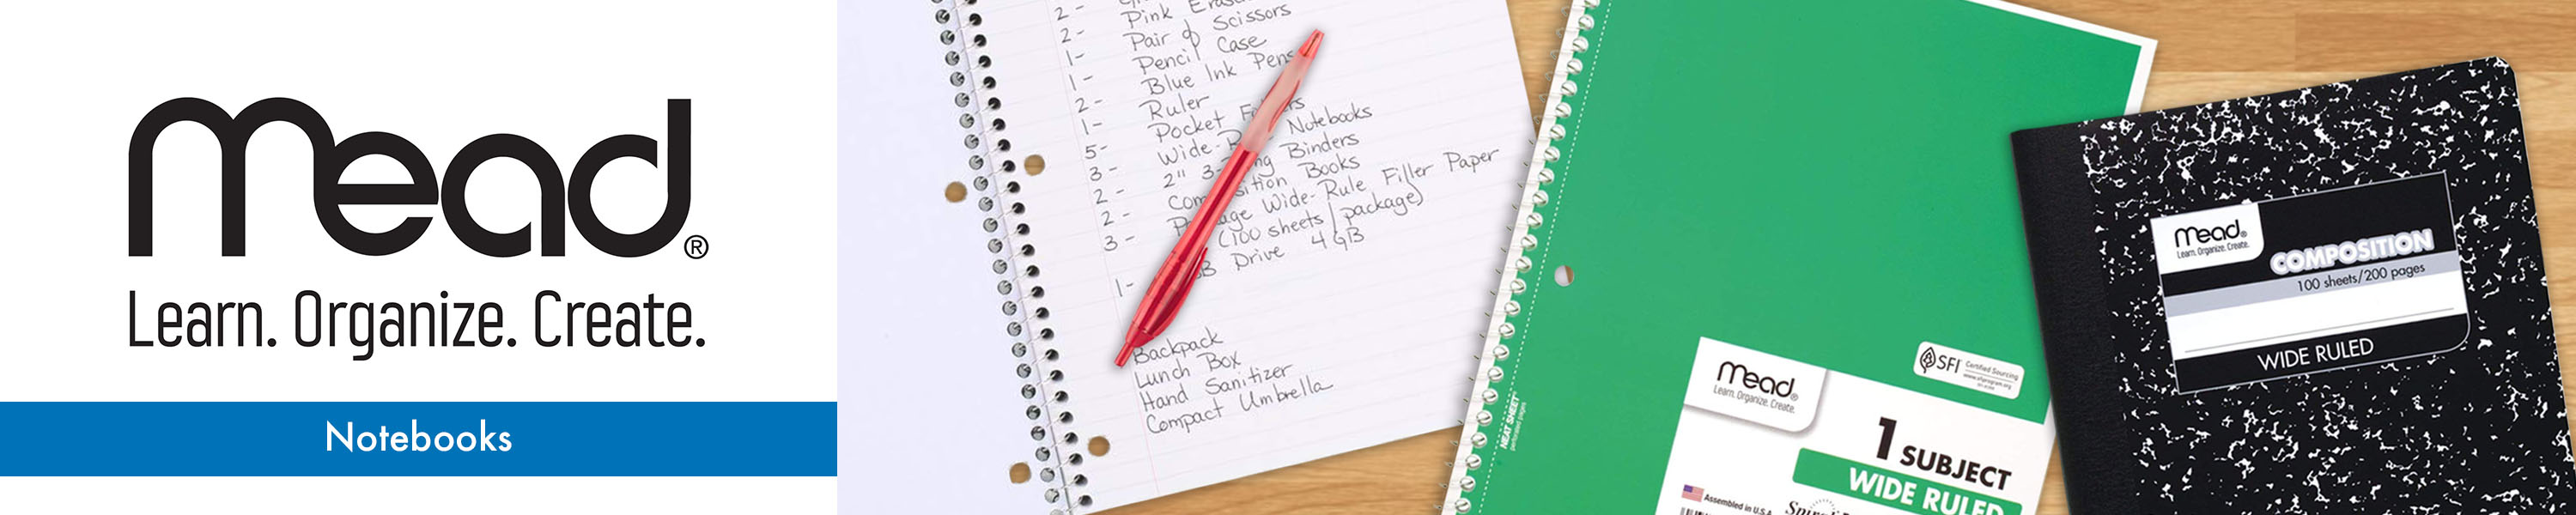 mead®
Learn. Organize. Create.
Notebooks
2-
2- Pink
1- Pair of Scissors
1- Pencil Case
2- Blue Ink Pens
1- Ruler
5- Pocket
3- Wide- Notebooks
2- 2" 3- Binders
2- Books
3- Wide-Rule Filler Paper
(100 sheets/package)
1- Drive 4 GB
Backpack
Lunch Box
Hand Sanitizer
Compact Umbrella
NEAT SHEET®
perforated pages
SFI Certified Sourcing
www.sfiprogram.org
mead®
Learn. Organize. Create.
1 SUBJECT
WIDE RULED
Assembled in U.S.A.
mead®
Learn. Organize. Create.
COMPOSITION
100 sheets/200 pages
WIDE RULED